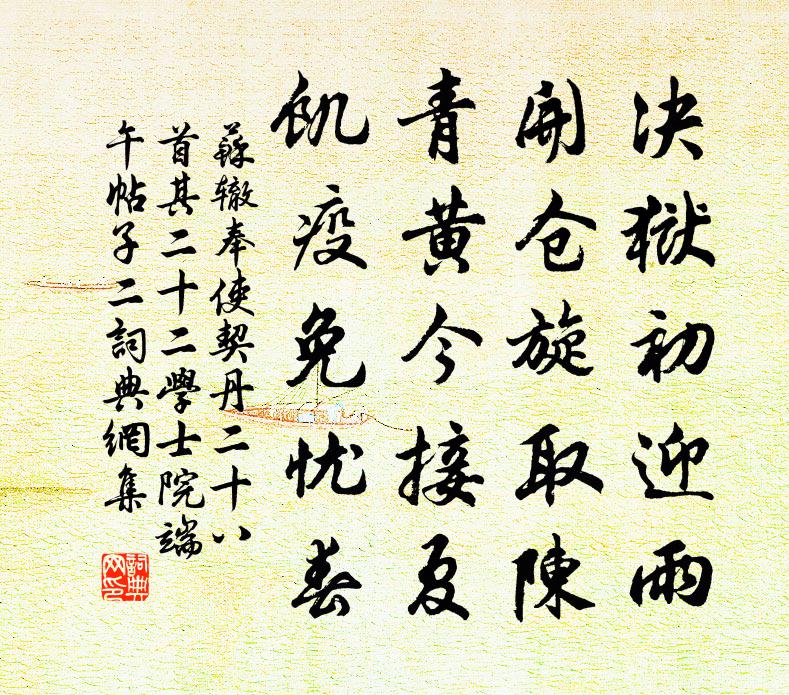 决狱初迎雨
開仓旋取陳
青黄今接夏
飢疫免忧春
蘇辙奉使契丹二十八
首其二十二學士院端
午帖子二詞典網集
詞典网印